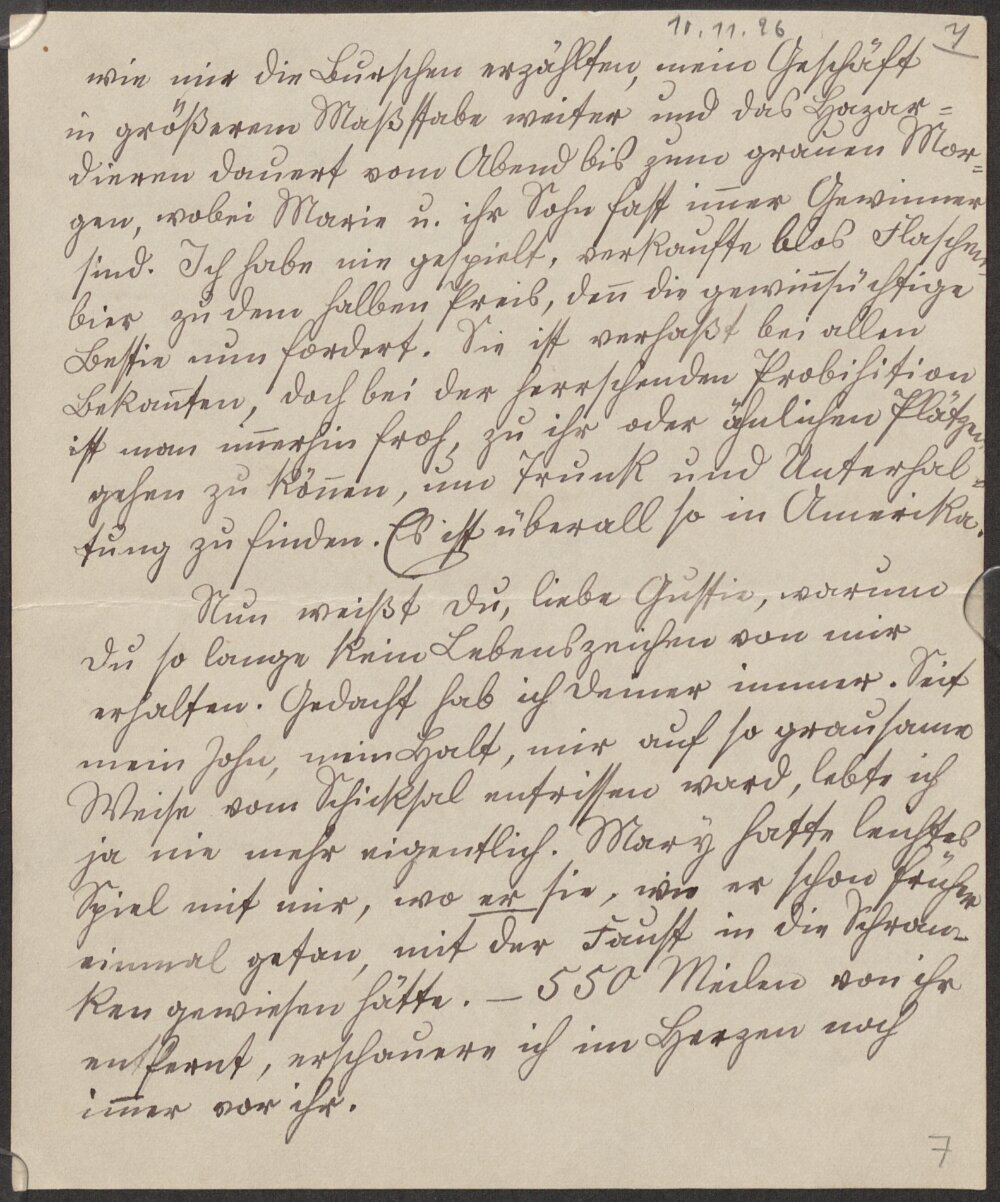 10.11.26
7
wie mir die Burschen erzählten, mein Geschäft
in größerem Maßstabe weiter und das Hazar=
dieren dauert vom Abend bis zum grauen Mor=
gen, wobei Marie u. ihr Sohn fast im̅er Gewinner
sind. Ich habe nie gespielt, verkaufte blos Flaschen=
bier zu dem halben Preis, den̅ die gewin̅süchtige
Bestie nun fordert. Sie ist verhaßt bei allen
Bekan̅ten, doch bei der herrschenden Probihition
ist man im̅erhin froh, zu ihr oder ähnlichen Plätzen
gehen zu kön̅en, um Trunk und Unterhal=
tung zu finden. Es ist überall so in Amerika.
Nun weißt du, liebe Gustie, warum
du so lange kein Lebenszeichen von mir
erhalten. Gedacht hab ich deiner immer. Seit
mein John, mein Halt, mir auf so grausame
Weise vom Schicksal entrissen ward, lebte ich
ja nie mehr eigentlich. Mary hatte leichtes
Spiel mit mir, wo er sie, wie er schon früher
einmal getan, mit der Faust in die Schran=
ken gewiesen hätte. — 550 Meilen von ihr
entfernt, erschauere ich im Herzen noch
im̅er vor ihr.
7